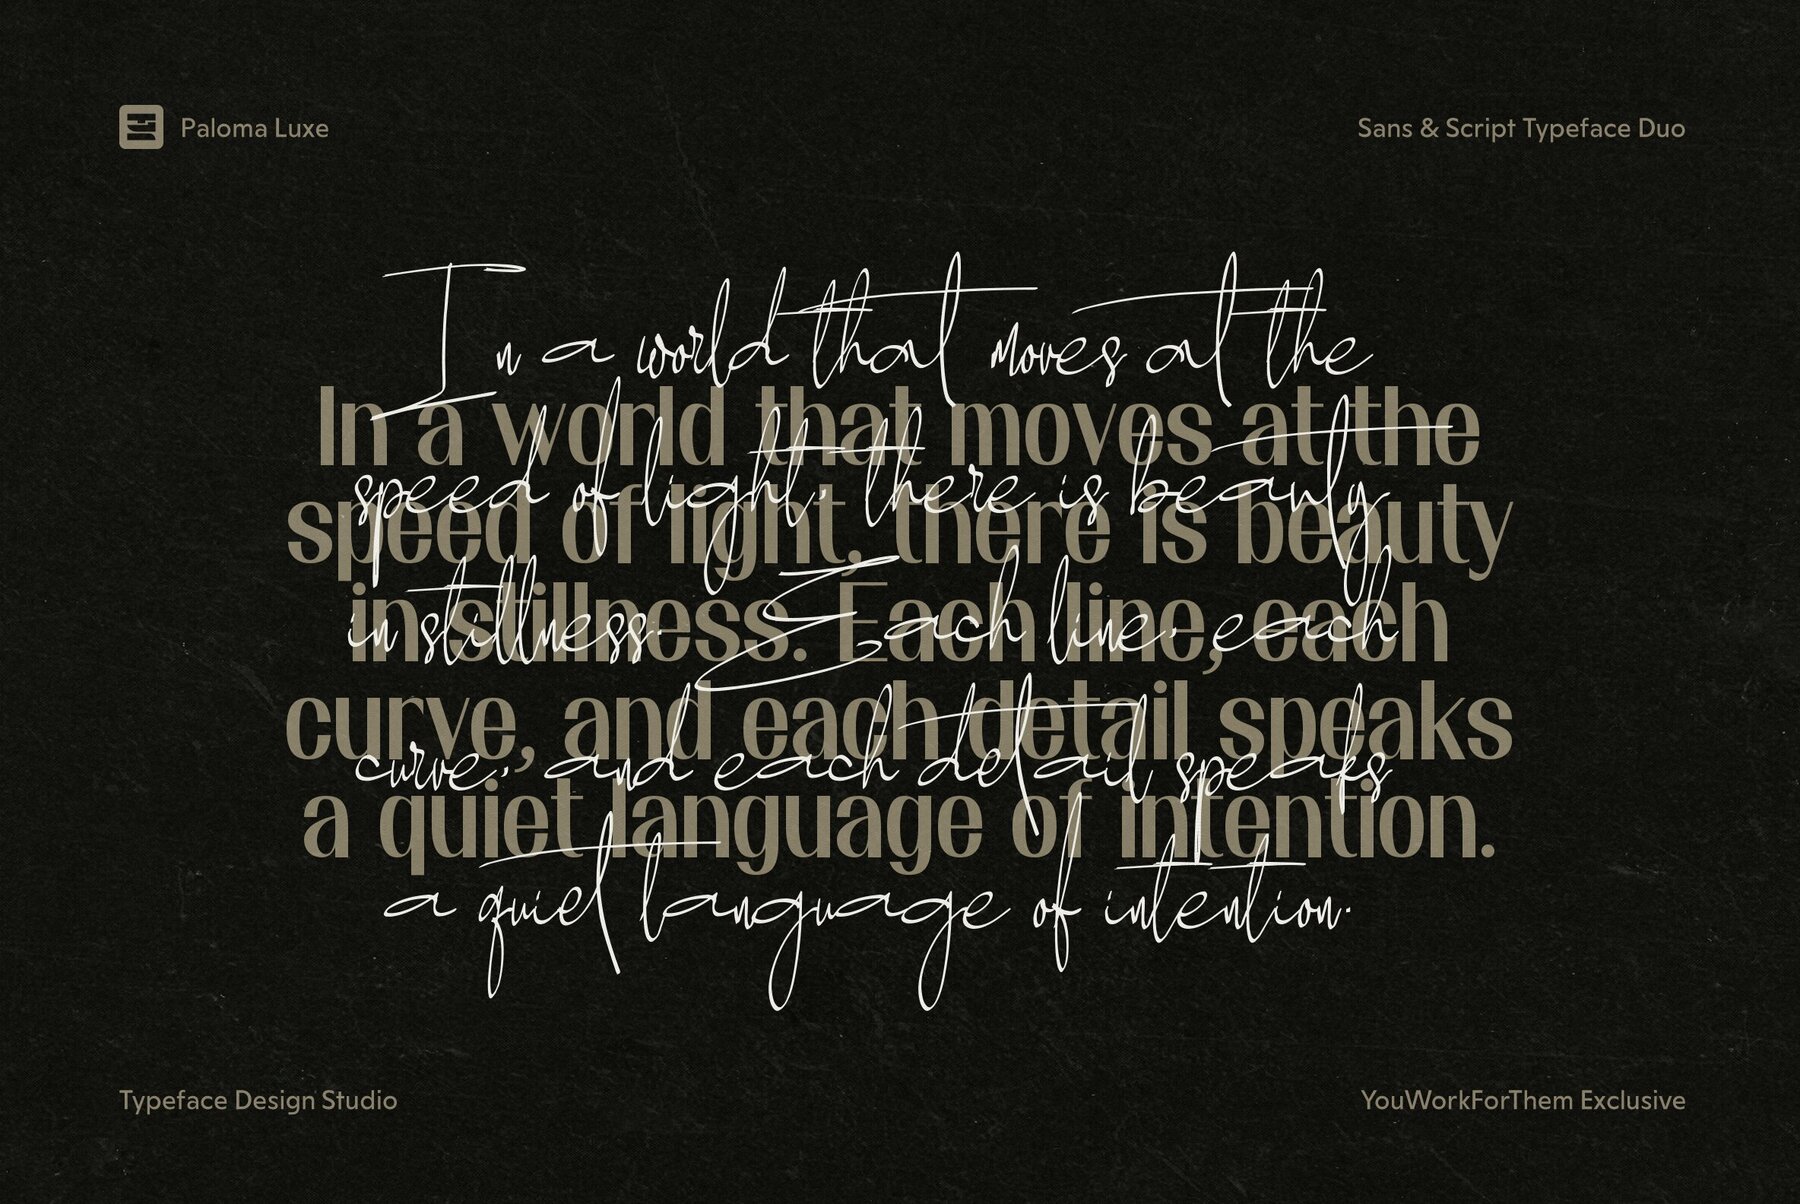 Paloma Luxe
Sans & Script Typeface Duo
In a world that moves at the
In a world that moves at the
speed of light, there is beauty
speed of light, there is beauty
in stillness. Each line, each
in stillness. Each line, each
curve, and each detail speaks
curve, and each detail speaks
a quiet language of intention.
a quiet language of intention.
Typeface Design Studio
YouWorkForThem Exclusive